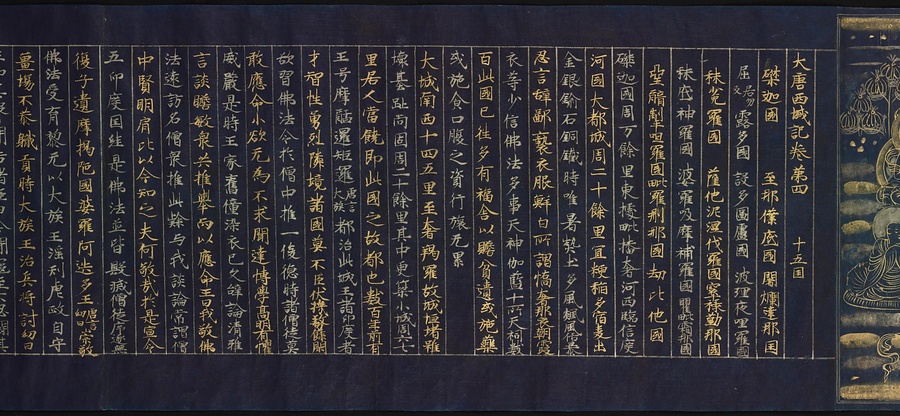 大唐西域記卷第四 十五國
磔迦國 至那僕底國 闍爛達那國
屈居勿反露多國 設多圖盧國 波理夜呾羅國
秣兎羅國 薩他泥濕伐羅國 窣祿勤那國
秣底補羅國 婆羅吸摩補羅國 瞿毗霜那國
堊醯掣呾羅國 毗羅刪那國 劫比他國
磔迦國周万餘里東據毗播奢河西臨信度
河國大都城周二十餘里宜粳稻多宿麦出
金銀鍮石銅鐵時唯暑熱土多風飆風俗暴
惡言辭鄙褻衣服鮮白所謂憍奢耶衣朝霞
衣等少信佛法多事天神伽藍十所天祠數
百此國已往多有福舍以贍貧匱或施藥
或施食口腹之資行旅无累
大城南西十四五里至奢羯羅故城垣堵雖
壞基趾尚固周二十餘里其中更築小城周六七
里居人富饒即此國之故都也數百年前有
王号摩醯邏矩羅唐言大族都治此城王諸印度有
才智性勇烈隣境諸國莫不臣伏機務餘閑
欲習佛法令於僧中推一俊德時諸僧徒莫
敢應命少欲无為不求聞達博學高明有懼
威嚴是時王家舊僮染衣已久辭論清雅
言談贍敏衆共推舉而以應命王曰我敬佛
法遠訪名僧衆推此隸与我談論常謂僧
中賢明肩比以今知之夫何敬哉於是宣令
五印度國繼是佛法並皆毀滅僧徒斥逐無
復孑遺摩揭陀國婆羅阿迭多王唐言幼日崇敬
佛法愛育黎元以大族王淫刑虐政自守
畺場不恭職貢時大族王治兵將討幼日